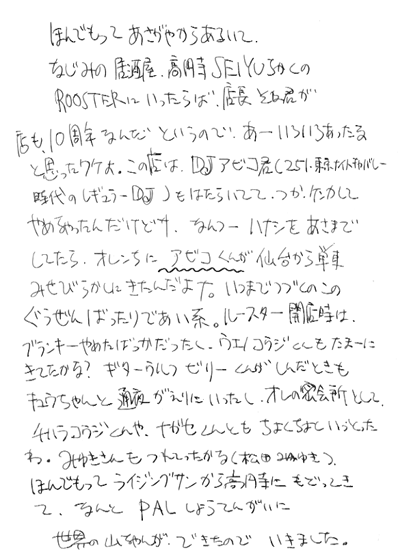 ほんでもって あさがやからあるいて、
なじみの居酒屋、高円寺SEIYUちかくの
ROOSTERにいったらば、店長 君が
店も、10周年なんだ というので、あーいろいろあったな
と思ったワケよ。この店は、DJアビコ君(251・東京ナイトキャバレー
時代のレギュラーDJ)もはたらいてて、つか、ケンカして
やめちゃったんだけどサ、なんつー ハナシを あさまで
してたら、オレンちに アビコくんが 仙台から単車
みせびらかしにきたんだよナ。いつまでつづくのこの
ぐうぜんばったりであい系。ルースター開店時は、
ブランキーやめたばっかだったし、ウエノコウジくんもたまーに
きてたかな? ギターウルフ ゼリーくんがしんだときも
キュウちゃんと 通夜がえりにいったし、オレの密会所として、
チバコウジくんや、ナガセくんとも ちょくちょくいっとった
わ。みゆきさんもつれてったかな(松田みゆき)。
ほんでもって ライジングサンから高円寺に もどってき
て、なんと PALしょうてんがいに
世界の山ちゃんが、できたので いきました。